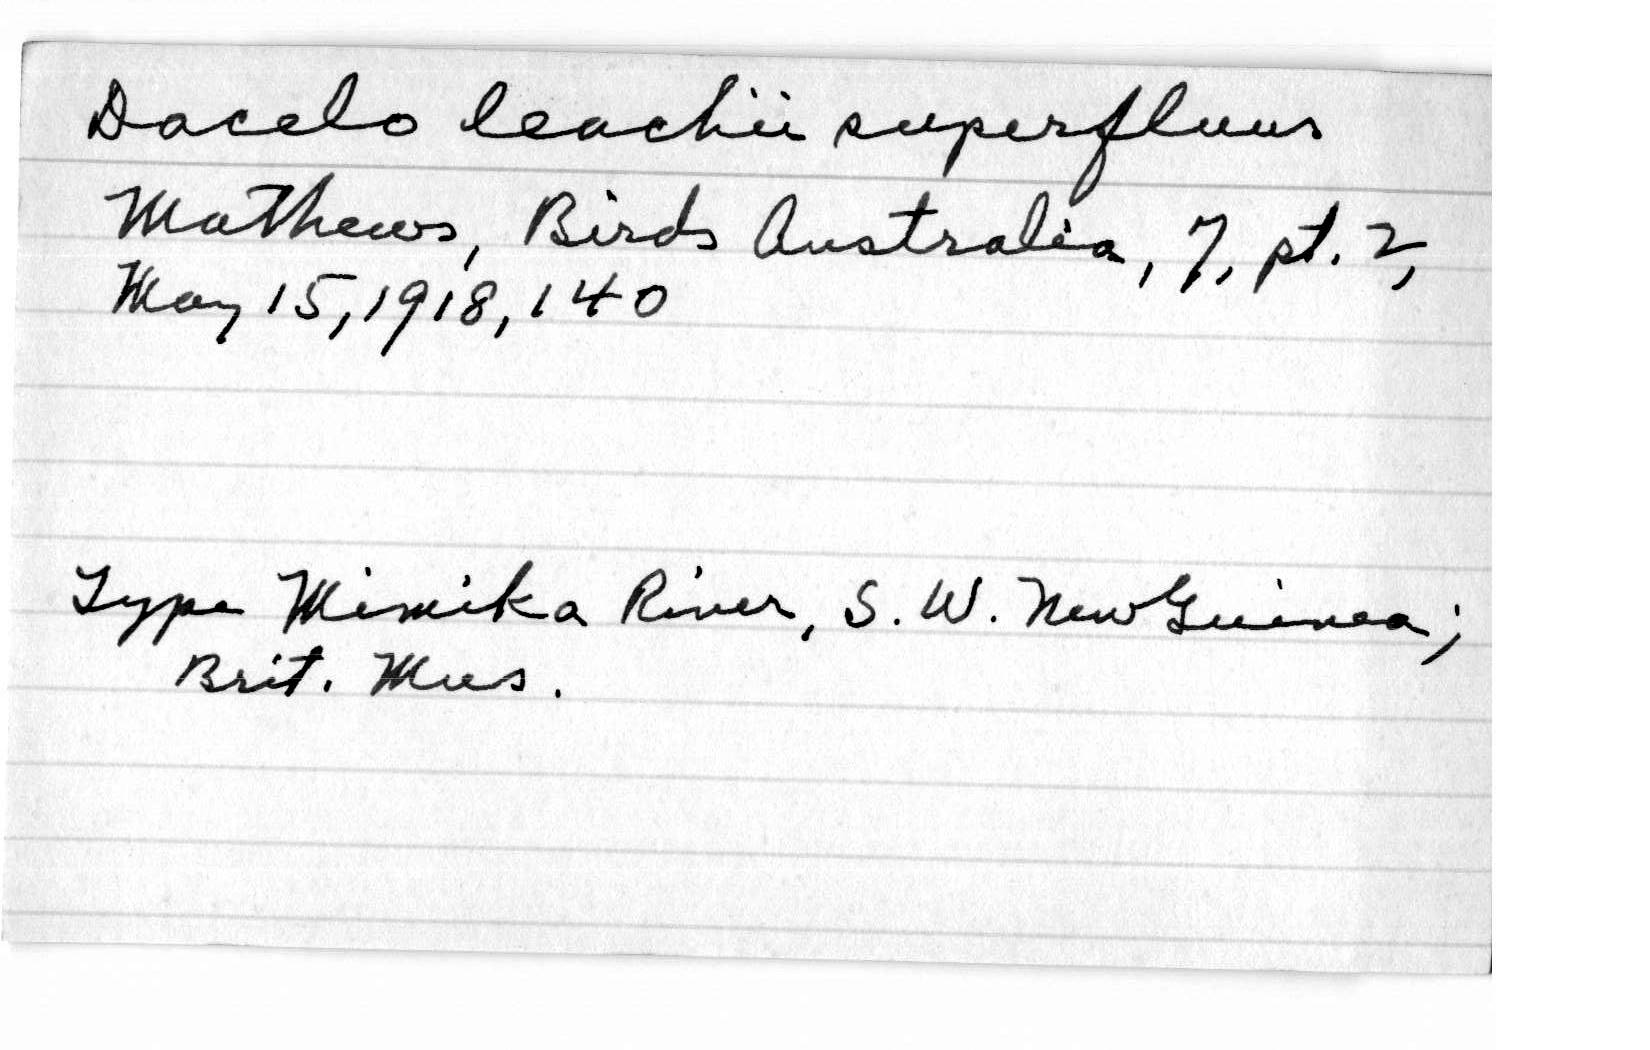 Dacelo leachii superfluus
Mathews, Birds Australia, 7, pt. 2,
May 15, 1918, 140
Type Mimika River, S. W. New Guinea;
Brit. Mus.